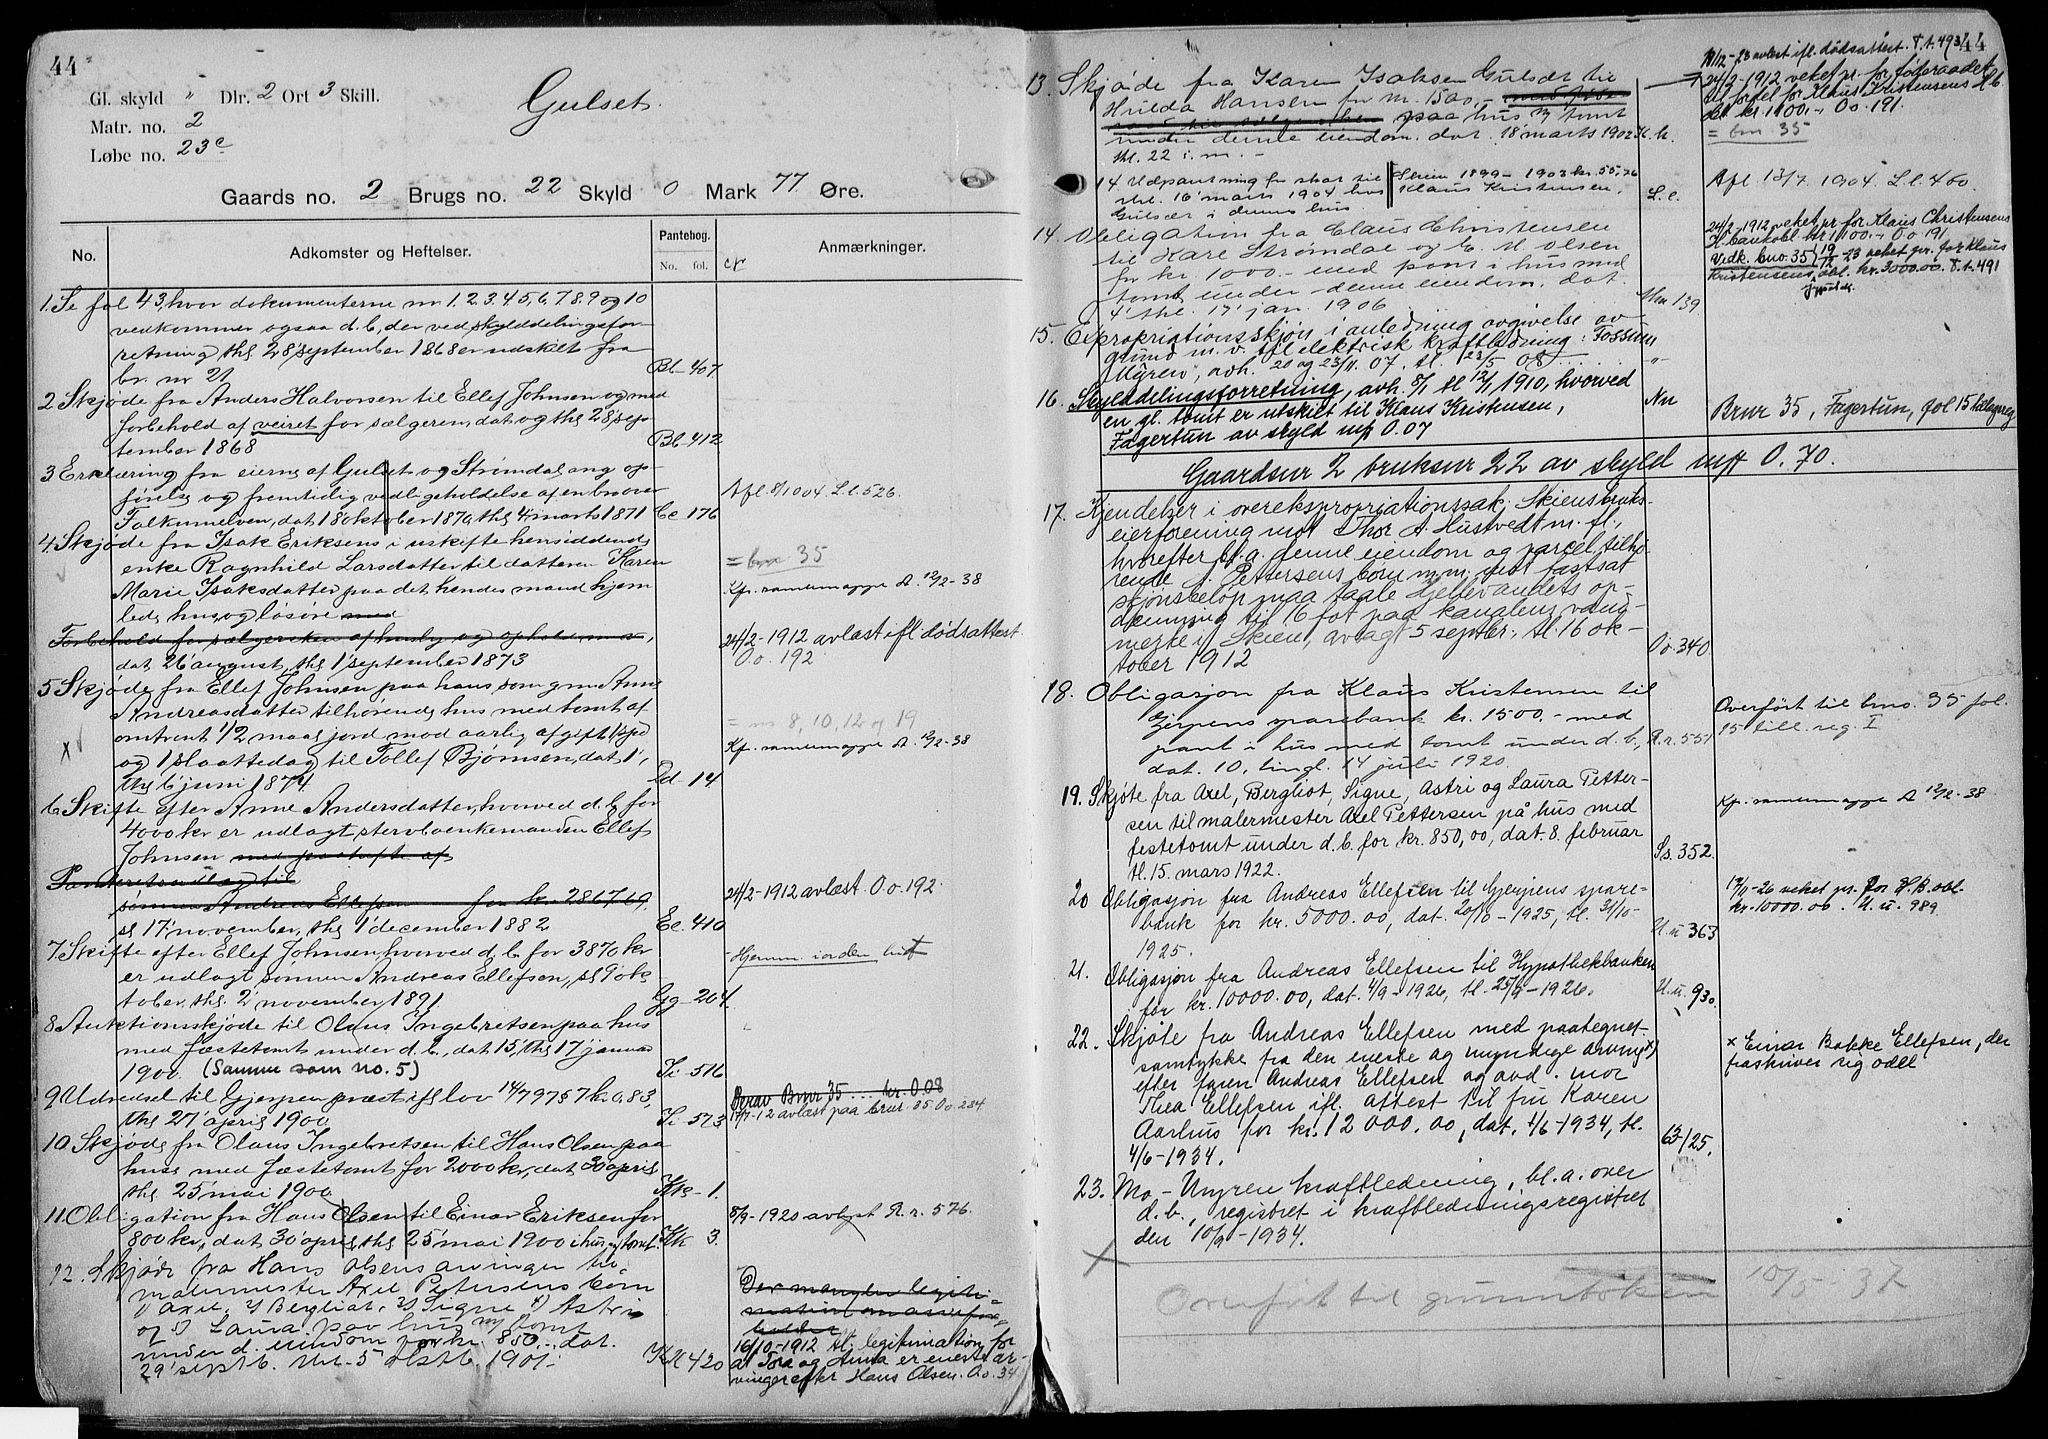 44
Gl. skyld " Dlr. 2 Ort 3 Skill.
Matr. no. 2
Løbe no. 23c
Gulset.
Gaards no. 2 Brugs no. 22 Skyld 0 Mark 77 Øre.
No. Adkomster og Heftelser. Pantebog. No. fol. Anmærkninger.
1. Se fol 43, hvor dokumenterne nr 1.2.3.4.5.6.7.8.9 og 10
vedkommer ogsaa d.b., der ved skylddelingsfor-
retning thg 28 september 1868 er udskilt fra
br. nr 21 Bb-407
2 Skjøde fra Anders Halvorsen til Ellef Johnsen og med
forbehold af veiret for sælgeren, dat og thg 28 sep-
tember 1868 Bb-412
3 Erklæring fra eierne af Gulset og Strømdal ang op-
førelse og fremtidig vedligeholdelse af en bro over
Falkumelven, dat 18 oktober 1870, thg 4 marts 1871 Cc-176 Afl. 8/10 04 L.l. 526.
4 Skjøde fra Isak Eriksens i uskifte hensiddende
enke Ragnhild Larsdatter til datteren Karen = bnr 35
Marie Isaksdatter paa det hendes mand hjem- Kfr. rammemappe A 12/2-38
lede hus og løsøre med
Forbehold for sælgersken af husly og ophold, 24/2-1912 avlæst ifl dødsattest.
dat 26 august, thg 1 september 1873 O.o. 192
5 Skjøde fra Ellef Johnsen paa hans som gm Anne
Andreasdatter tilhørende hus med tomt af = nr 8, 10, 12 og 19
omtrent 1/2 maal jord mod aarlig afgift 1 spd Kfr. rammemappe A 12/2-38
og 1 slaattedag til Tollef Bjørnsen, dat 1,
thg 6 juni 1874 Dd-14
6 Skifte efter Anne Andersdatter, hvorved d.b. for
4000 kr er udlagt stervboenkemanden Ellef
Johnsen med paaheft af
Panteretsudlæg til
sønnen Andreas Ellefsen for kr. 2867.69, 24/2-1912 avlæst O.o. 192.
sl 17 november, thg 1 december 1882 Ee-410
7 Skifte efter Ellef Johnsen, hvorved d.b. for 3870 kr
er udlagt sønnen Andreas Ellefsen, sl 9 ok-
tober, thg 2 november 1891 Gg-204.
8 Auktionsskjøde til Olaus Ingebretsen paa hus
med fæstetomt under d.b., dat 15, thg 17 januar
1900. (Samme som no. 5) Ii-516
9 Udredsel til Gjerpen præst ifl lov 14/7 97 57 kr. 0,83, Berav Bnr 35 ... kr. 0.08
thg 27 april 1900 Ii-573 avlæst paa brnr. 35 O.o. 234
10 Skjøde fra Olaus Ingebretsen til Hans Olsen paa
huse med fæstetomt for 2000 kr, dat 30 april
thg 25 mai 1900 Kk-1.
11 Obligation fra Hans Olsen til Einar Eriksen for 8/9-1920 avlyst R.r. 576.
800 kr, dat 30 april, thg 25 mai 1900 i hus og tomt. Kk 3.
12. Skjøde fra Hans Olsens arvinger til
malermester Axel Petersens børn Der mangler legiti-
1) Axel, 2) Bergliot, 3) Signe 4) Astri mation om arvefor-
og 5) Laura paa hus m/ tomt holdet
under d. eiendom for kr. 850.-, dat. 16/10-1912 tl. legitimation for
29 septb. thl. 5 oktb. 1901. Kk 420 at Tora og Anna er eneste ar-
vinger efter Hans Olsen. O.o. 34
44
13. Skjøde fra Karen Isaksen Gulset til
Hulda Hansen for kr. 1500,-
paa hus m/ tomt
under denne eiendom. dat. 18 marts 1902
thl. 22 i.m. -
avlæst ifl. dødsattest. T.t. 493
24/2-1912 veket pr. for føderaadet
til fordel for Klaus Kristensens
obl kr 1100.- O.o. 191.
= bnr 35
14 Udpantning for skat til Skien 1899-1903 kr. 55,76
thl. 16 marts 1904 hos Klaus Kristensen,
Gulset i dennes hus. L.l. Afl 13/7 1904. L.l. 460.
14. Obligation fra Claus Christensen
til Kare Strømdal og C. H. Olsen
for kr 1000.- med pant i hus med
tomt under denne eiendom, dat.
4 thl. 17 jan. 1906 Mm 139
24/2-1912 veket pr for Klaus Christensens
H.bankobl kr 1100.- O.o 191
Vedk. bno. 35 19/12 23 veket pr. for Klaus
Kristensens obl. kr. 3000.00. T.t. 491
15. Expropriationsskjøn i anledning avgivelse av
grund m.v. til elektrisk kraftledning: Fossum
Myren, avh. 20 og 23/11. 07. tl. 23/5 08. "
16. Skylddelingsforretning, avh. 8/1 tl 12/1 1910, hvorved
en gl. tomt er utskilt til Klaus Kristensen, Nn
Fagertun av skyld mrk 0.07 Brnr 35, Fagertun, fol 15 tillægsreg
Gaardsnr 2 bruksnr 22 av skyld mrk 0.70.
17. Kjendelser i overekspropriationssak: Skiens bruks-
eierforening mot Thor A. Hustvedt m. fl.,
hvorefter bl. a. denne eiendom og parcel tilhø-
rende J. Pettersens børn m.m. mot fastsat
skjønsbeløp maa taale Hjellevandets op-
dæmning til 16 fot paa kanalens vand-
merke i Skien, avlagt 5 septbr., tl. 16 ok-
tober 1912 O.o. 340
18. Obligasjon fra Klaus Kristensen til
Gjerpens sparebank kr. 1500.- med Overført til bno. 35 fol.
pant i hus med tomt under d.b., R.r. 551 15 till. reg. I
dat. 10, tingl. 14 juli 1920.
19. Skjøte fra Axel, Bergliot, Signe, Astri og Laura Petter-
sen til malermester Axel Pettersen på hus med Kfr. rammemappe A 12/2-38
festetomt under d.b. for kr. 850,00, dat. 8. februar
tl. 15. mars 1922. Ss. 352.
20 Obligasjon fra Andreas Ellefsen til Gjerpens spare-
bank for kr. 5000.00, dat. 20/10-1925, tl. 31/10-
1925. U.u 363
veket pr. for H.B. obl.
kr. 10000.00. U.u. 989.
21. Obligasjon fra Andreas Ellefsen til Hypothekbanken
for kr. 10000.00, dat. 4/9-1926, tl. 25/9-1926. U.u. 930.
22. Skjøte fra Andreas Ellefsen med paategnet
samtykke fra den eneste og myndige arving x) x Einar Bakke Ellefsen, der
efter faren Andreas Ellefsen og avd. mor fraskriver sig odel
Thea Ellefsen ifl. attest til fru Karen
Aarhus for kr. 12 000.00, dat. 1/6-1934, tl.
4/6-1934. 63/125.
23. Mo-Myren kraftledning, bl. a. over
d.b., registret i kraftledningsregistret
den 10/9-1934.
Overført til grunnboken 10/5-37